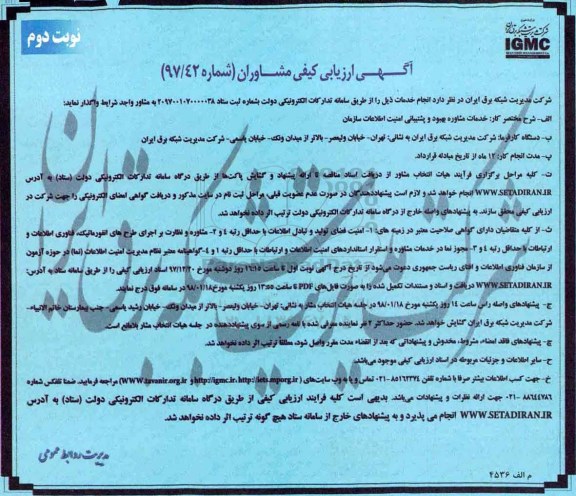 نوبت دوم
شرکت مدیریت شبکه برق ایران
IGMC
آگهی ارزیابی کیفی مشاوران (شماره ۹۷/۴۲)
شرکت مدیریت شبکه برق ایران در نظر دارد انجام خدمات ذیل را از طریق سامانه تدارکات الکترونیکی دولت بشماره ثبت ستاد ۲۰۹۷۰۰۱۰۷۰۰۰۰۰۳۸ به مشاور واجد شرایط واگذار نماید:
الف- شرح مختصر کار: خدمات مشاوره بهبود و پشتیبانی امنیت اطلاعات سازمان
ب- دستگاه کارفرما: شرکت مدیریت شبکه برق ایران به نشانی: تهران- خیابان ولیعصر- بالاتر از میدان ونک- خیابان یاسمی- شرکت مدیریت شبکه برق ایران
پ- مدت انجام کار: ۱۲ ماه از تاریخ مبادله قرارداد.
ت- کلیه مراحل برگزاری فرآیند هیات انتخاب مشاور از دریافت اسناد مناقصه تا ارائه پیشنهاد و گشایش پاکت‌ها از طریق درگاه سامانه تدارکات الکترونیکی دولت (ستاد) به آدرس
WWW.SETADIRAN.IR انجام خواهد شد و لازم است پیشنهاددهندگان در صورت عدم عضویت قبلی، مراحل ثبت نام در سایت مذکور و دریافت گواهی امضای الکترونیکی را جهت شرکت در
ارزیابی کیفی محقق سازند. به پیشنهادهای واصله خارج از درگاه سامانه تدارکات الکترونیکی دولت ترتیب اثر داده نخواهد شد.
ث- از کلیه متقاضیان دارای گواهی صلاحیت معتبر در زمینه های: ۱- امنیت فضای تولید و تبادل اطلاعات با حداقل رتبه ۴ و ۲- مشاوره و نظارت بر اجرای طرح های انفورماتیک، فناوری اطلاعات و
ارتباطات با حداقل رتبه ۴ و ۳- مجوز نما در خدمات مشاوره و استقرار استانداردهای امنیت اطلاعات و ارتباطات با حداقل رتبه ۱ و ۴-گواهینامه معتبر نظام مدیریت امنیت اطلاعات (نما) در حوزه آزمون
از سازمان فناوری اطلاعات و افتای ریاست جمهوری دعوت می‌شود از تاریخ درج آگهی نوبت اول تا ساعت ۱۶:۱۵ روز دوشنبه مورخ ۹۷/۱۲/۲۰ اسناد ارزیابی کیفی را از طریق سامانه ستاد به آدرس:
WWW.SETADIRAN.IR دریافت و اسناد و مستندات تکمیل شده را به صورت فایل‌های PDF تا ساعت ۱۳:۵۵ روز یکشنبه مورخ ۹۸/۰۱/۱۸ در سامانه فوق درج نمایند.
ج- پیشنهادهای واصله راس ساعت ۱۴ روز یکشنبه مورخ ۹۸/۰۱/۱۸ در جلسه هیات انتخاب مشاور به نشانی: تهران- خیابان ولیعصر- بالاتر از میدان ونک- خیابان رشید یاسمی- جنب بیمارستان خاتم الانبیاء-
شرکت مدیریت شبکه برق ایران گشایش خواهد شد. حضور حداکثر ۲ نفر نماینده معرفی شده با نامه رسمی از سوی پیشنهاددهنده در جلسه هیات انتخاب مشاور بلامانع است.
چ- پیشنهادهای فاقد امضاء، مشروط، مخدوش و پیشنهاداتی که بعد از انقضاء مدت مقرر واصل شود، مطلقاً ترتیب اثر داده نخواهد شد.
ح- سایر اطلاعات و جزئیات مربوطه در اسناد ارزیابی کیفی موجود می‌باشد.
خ- جهت کسب اطلاعات بیشتر صرفا با شماره تلفن ۸۵۱۶۲۳۷۴-۰۲۱ تماس و یا به وب سایت‌های (http://iets.mporg.ir ،http://igmc.ir و WWW.tavanir.org.ir) مراجعه فرمایید. ضمنا تلفکس شماره
۸۸۶۴۴۷۸۶-۰۲۱ جهت ارائه نظرات و پیشنهادات می‌باشد. بدیهی است کلیه فرایند ارزیابی کیفی از طریق درگاه سامانه تدارکات الکترونیکی دولت (ستاد) به آدرس
WWW.SETADIRAN.IR انجام می پذیرد و به پیشنهادهای خارج از سامانه ستاد هیچ گونه ترتیب اثر داده نخواهد شد.
مدیریت روابط عمومی
م الف ۴۵۳۶